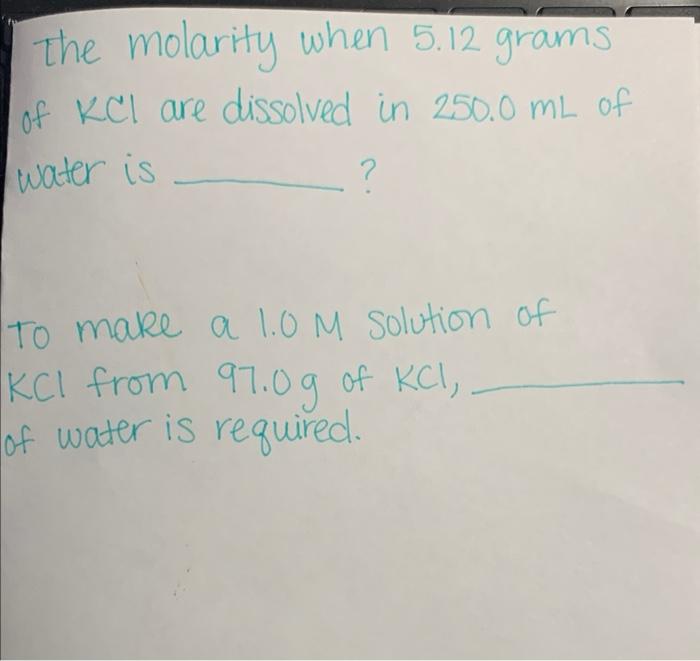 The molarity when 5.12 grams
of KCl are dissolved in 250.0 mL of
water is ________ ?
To make a 1.0 M solution of
KCl from 97.0g of KCl, ________
of water is required.